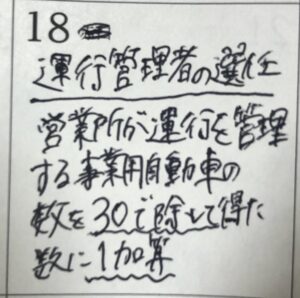 18
運行管理者の選任
営業所が運行を管理
する事業用自動車の
数を30で除して得た
数に1加算